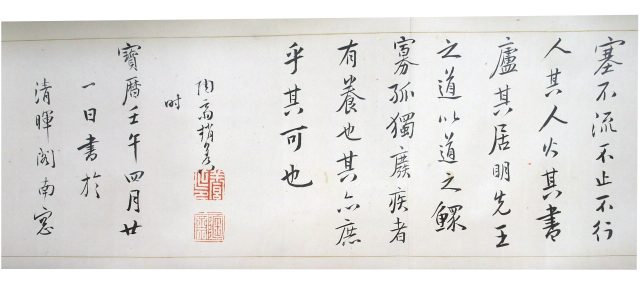 塞不流不止不行
人其人火其書
廬其居明先王
之道以道之鰥
寡孤獨廢疾者
有養也其亦庶
乎其可也
时
寶曆壬午四月廿
一日書於
清暉閣南窓